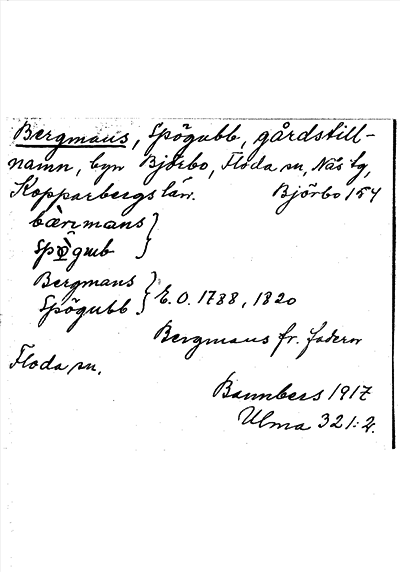 Bergmans, Spögubb, gårdstill-
namn, byn Björbo, Floda sn, Nås tg,
Kopparbergs län. Björbo 154
bær̀mans }
spò̩gub }
Bergmans }
Spögubb } E.O. 1788, 1820
Bergmans fr. fadern
Floda sn.
Bannbers 1917
Ulma 321:2.